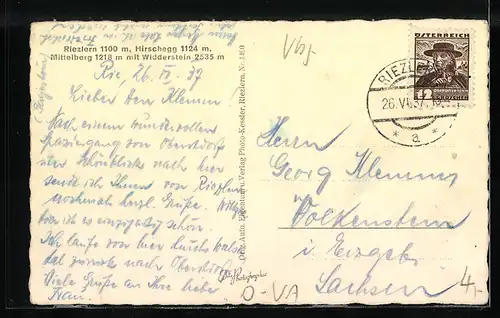 Riezlern 1100 m, Hirschegg 1124 m,
Mittelberg 1218 m mit Widderstein 2535 m
Rie, 26. VI. 37
Lieber Herr Klemm!
Nach einem wundervollen
Spaziergang von Oberstdorf
über Schönblick nach hier
sende ich Ihnen von Riezlern
nochmals herzl. Grüße.
hier ist es einzigartig schön.
Ich laufe von hier durchs Walser
tal zurück nach Oberstdorf.
Viele Grüße an Ihre liebe
Frau.
Orig. Aufn. Eigentum u. Verlag Photo-Kessler, Riezlern. Nr.
Herrn
Georg Klemm
Wolkenstein
i. Erzgeb.
Sachsen
RIEZLERN
26. VI. 37
* a *
12
ÖSTERREICH
D-VA
4,-